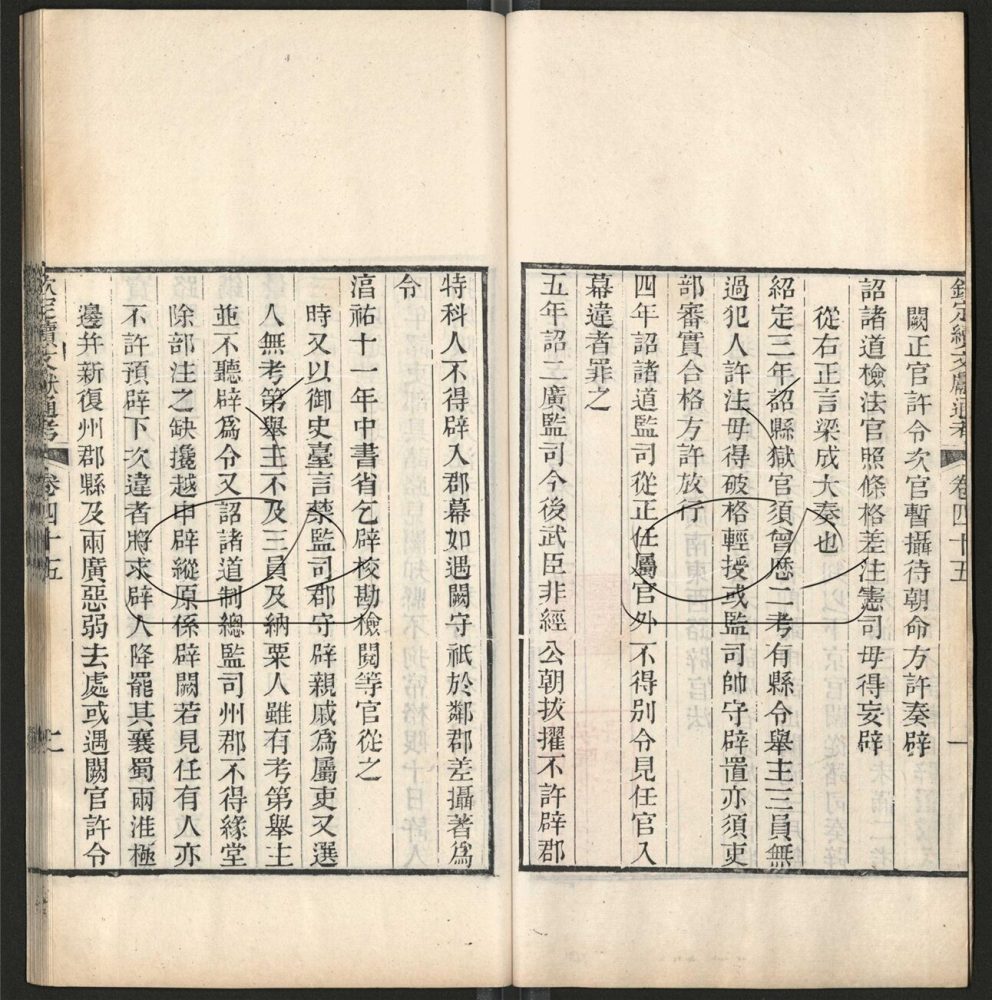 欽定續文獻通考 卷四十五 一
闕正官許令次官暫攝待朝命方許奏辟
詔諸道檢法官照條格差注憲司毋得妄辟
從右正言梁成大奏也
紹定三年詔縣獄官須曾歷二考有縣令舉主三員無
過犯人許注毋得破格輕授或監司帥守辟置亦須吏
部審實合格方許放行
四年詔諸道監司從正任屬官外不得别令見任官入
幕違者罪之
五年詔二廣監司今後武臣非經公朝拔擢不許辟郡
特科人不得辟入郡幕如遇闕守祇於鄰郡差攝著為
令
淳祐十一年中書省乞辟校勘檢閱等官從之
時又以御史臺言禁監司郡守辟親戚為屬吏又選
人無考第舉主不及三員及納粟人雖有考第舉主
並不聽辟為令又詔諸道制總監司州郡不得緣堂
除部注之缺攙越申辟縱原係辟闕若見任有人亦
不許預辟下次違者將求辟人降罷其襄蜀兩淮極
邊幷新復州郡縣及兩廣惡弱去處或遇闕官許令
欽定續文獻通考 卷四十五